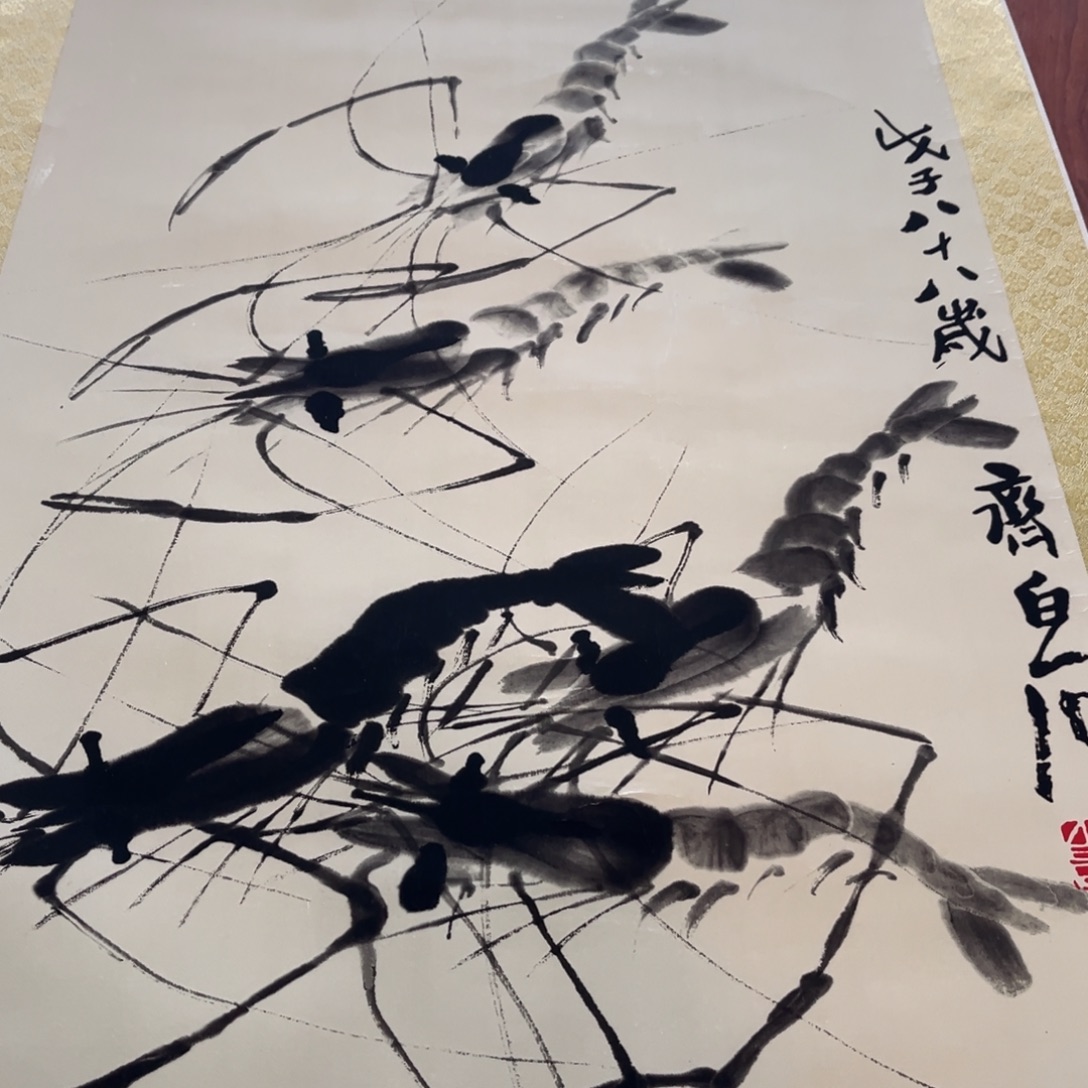 戊子八十八歲
齊白石